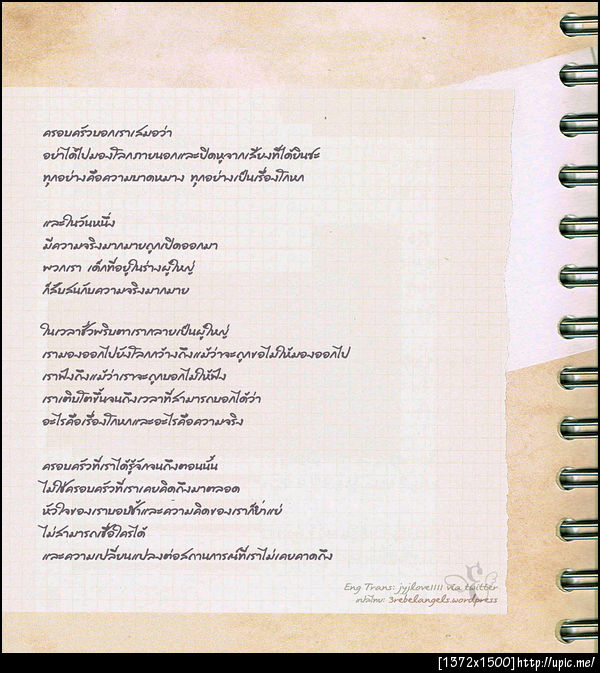 ครอบครัวบอกเราเสมอว่า
อย่าได้ไปมองโลกภายนอกและปิดหูจากเสียงที่ได้ยินซะ
ทุกอย่างคือความบาดหมาง ทุกอย่างเป็นเรื่องโกหก
และในวันหนึ่ง
มีความจริงมากมายถูกเปิดออกมา
พวกเรา เด็กที่อยู่ในร่างผู้ใหญ่
ก็สับสนกับความจริงมากมาย
ในเวลาชั่วพริบตาเรากลายเป็นผู้ใหญ่
เรามองออกไปยังโลกกว้างถึงแม้ว่าจะถูกขอไม่ให้มองออกไป
เราฟังถึงแม้ว่าเราจะถูกบอกไม่ให้ฟัง
เราเติบโตขึ้นจนถึงเวลาที่สามารถบอกได้ว่า
อะไรคือเรื่องโกหกและอะไรคือความจริง
ครอบครัวที่เราได้รู้จักจนถึงตอนนั้น
ไม่ใช่ครอบครัวที่เราเคยคิดถึงมาตลอด
หัวใจของเราบอบช้ำและความคิดของเราก็ย่ำแย่
ไม่สามารถเชื่อใครได้
และความเปลี่ยนแปลงต่อสถานการณ์ที่เราไม่เคยคาดถึง
Eng Trans: jyjlove1111 via twitter
แปลไทย: 3rebelangels.wordpress
[1372x1500]http://upic.me/